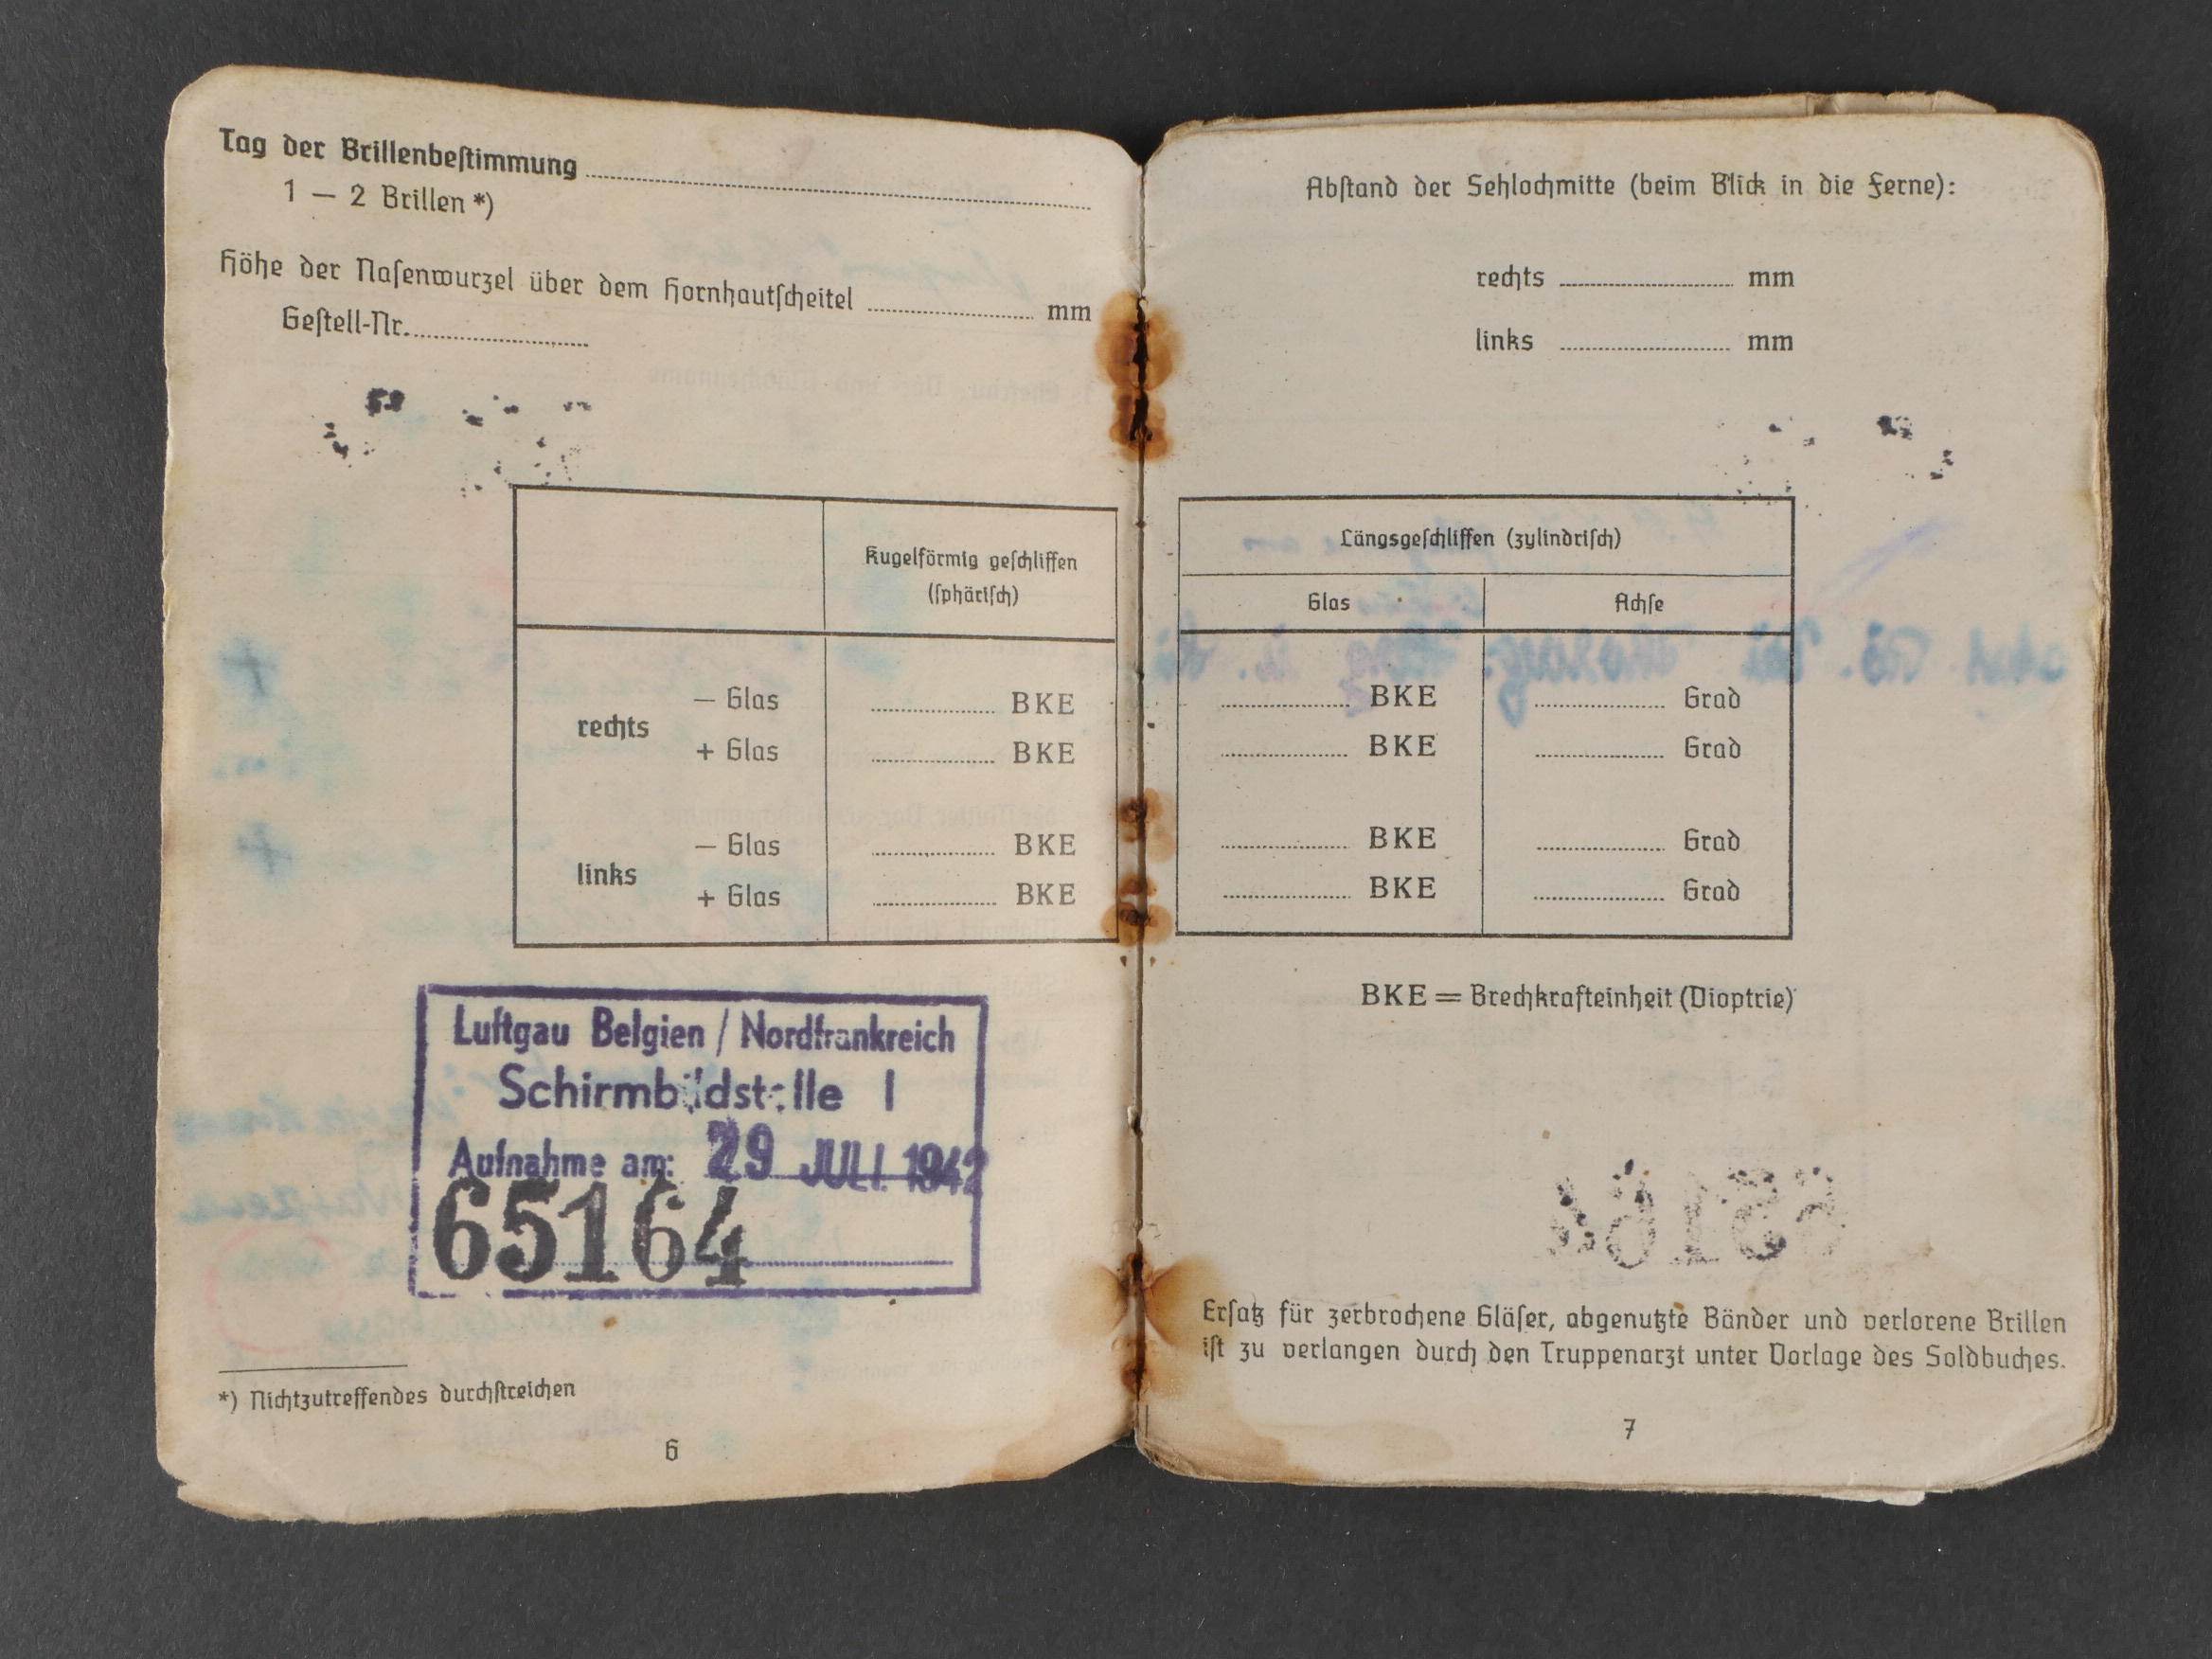 Tag der Brillenbeſtimmung
1 — 2 Brillen *)
Höhe der Naſenwurzel über dem Hornhautſcheitel mm
Geſtell-Nr.
Kugelförmig geſchliffen
(ſphäriſch)
rechts
— Glas BKE
+ Glas BKE
links
— Glas BKE
+ Glas BKE
Luftgau Belgien / Nordfrankreich
Schirmbildstelle I
Aufnahme am: 29 JULI 1942
65164
*) Nichtzutreffendes durchſtreichen
6
Abſtand der Sehlochmitte (beim Blick in die Ferne):
rechts mm
links mm
Längsgeſchliffen (zylindriſch)
Glas Achſe
BKE Grad
BKE Grad
BKE Grad
BKE Grad
BKE = Brechkrafteinheit (Dioptrie)
Erſatz für zerbrochene Gläſer, abgenutzte Bänder und verlorene Brillen
iſt zu verlangen durch den Truppenarzt unter Vorlage des Soldbuches.
7